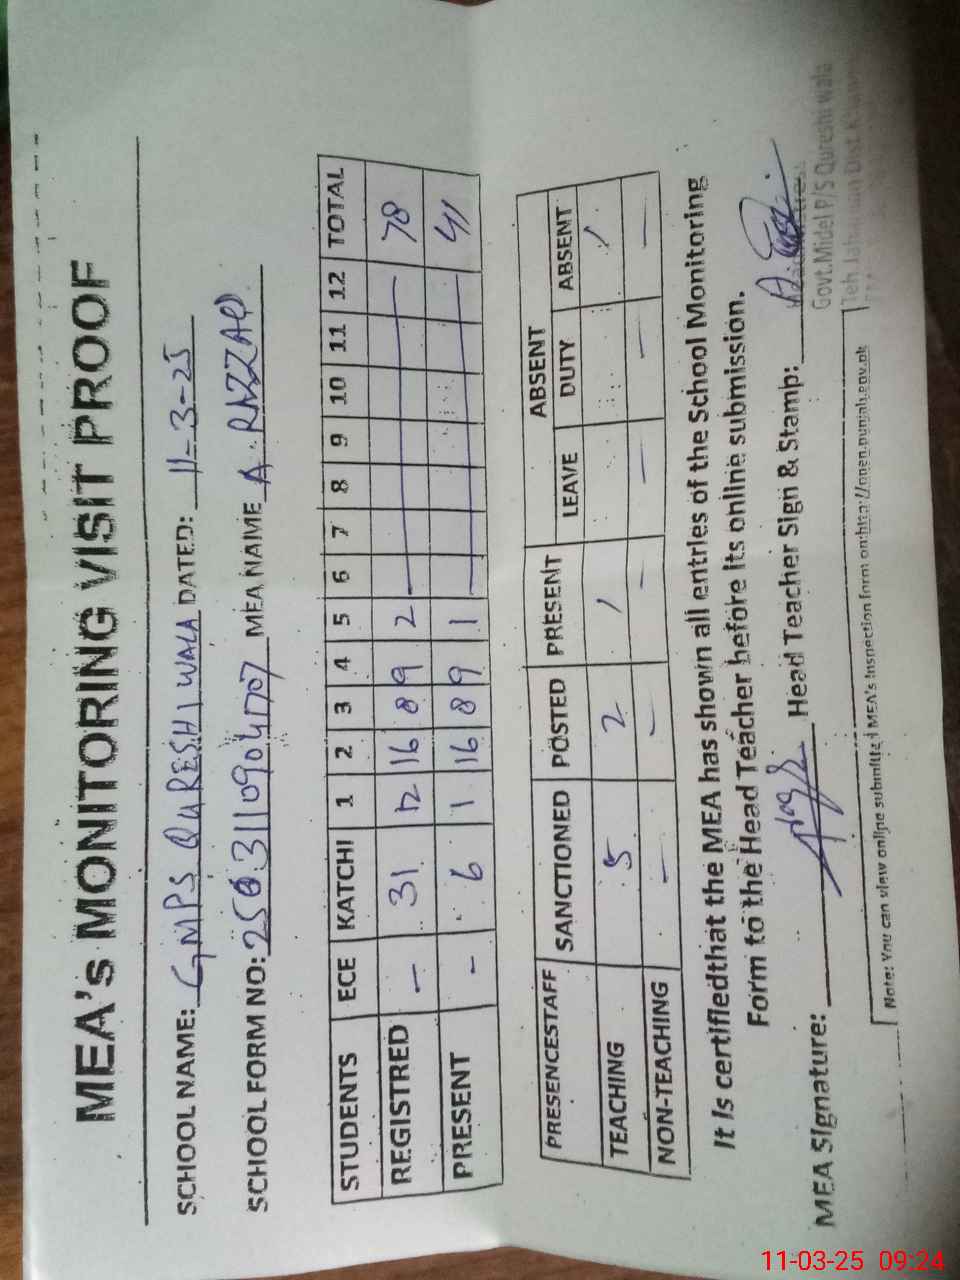 MEA's MONITORING VISIT PROOF
SCHOOL NAME: GMPS QURESHI WALA DATED: 11-3-25
SCHOOL FORM NO: MEA NAME A. RAZZAQ
STUDENTS ECE KATCHI 1 2 3 4 5 6 7 8 9 10 11 12 TOTAL
REGISTRED - 31 12 16 8 9 2 — 78
PRESENT - 6 1 16 8 9 1 — 41
ABSENT
PRESENCESTAFF SANCTIONED POSTED PRESENT LEAVE DUTY ABSENT
TEACHING 5 2 1 1
NON-TEACHING - - - - - -
It Is certifiedthat the MEA has shown all entries of the School Monitoring
Form to the Head Teacher before its online submission.
MEA Signature: Head Teacher Sign & Stamp:
Govt.Midel P/S Qureshi wala
Note: You can view online submitted MEA's Inspection form on:http://open.punjab.gov.pk
11-03-25 09:24